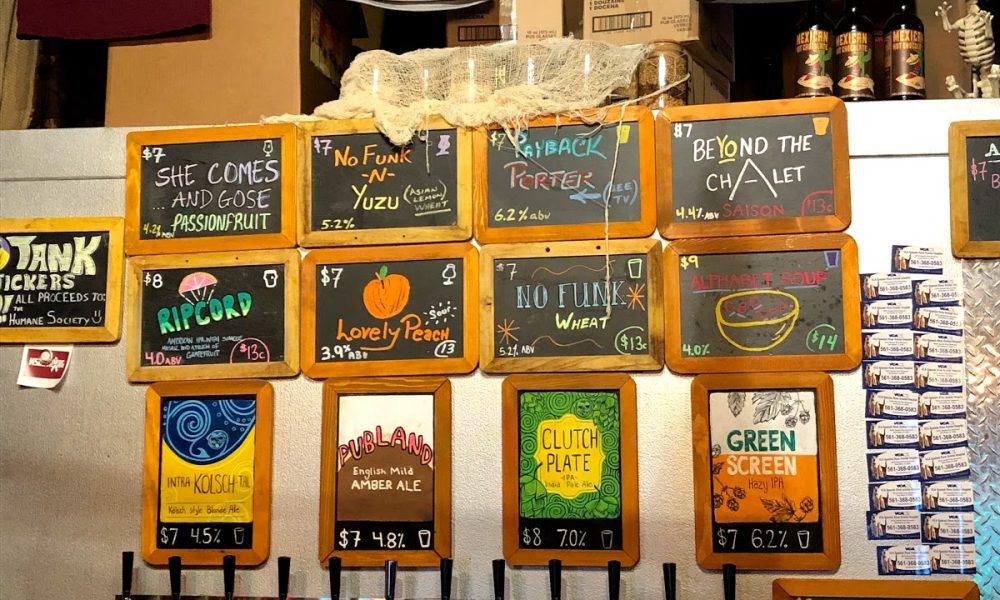 DOUZAINE /
DOCENA
16 oz (473 m
PUB GLASSES
MEXICAN
HOT CHOCOLATE
MEXICAN
HOT CHOCOLATE
MEXICAN
HOT CHOCOLATE
TANK
STICKERS
ALL PROCEEDS TO:
THE
HUMANE SOCIETY
$7
SHE COMES
...AND GOSE
PASSIONFRUIT
4.2% ABV
$7
NO FUNK
-N-
YUZU
(ASIAN
LEMON)
WHEAT
5.2%
$7
PAYBACK
PORTER
(SEE
TV)
6.2% abv
$7
BEYOND THE
CHALET
4.4% ABV
SAISON
$13c
$8
RIPCORD
AMERICAN IPA WITH
MOSAIC AND A TOUCH OF
GRAPEFRUIT
4.0 ABV
$13c
$7
"Sour"
Lovely Peach
3.9% ABV
13
7
NO FUNK
WHEAT
5.2% ABV
$13c
$9
ALPHABET SOUP
4.0%
$14
INTRA KÖLSCH TAL
Kölsch style Blonde Ale
$7 4.5%
PUBLAND
English Mild
AMBER ALE
$7 4.8%
CLUTCH
PLATE
-IPA-
India Pale Ale
$8 7.0%
GREEN
SCREEN
Hazy IPA
$7 6.2%
VCA
561-368-0583